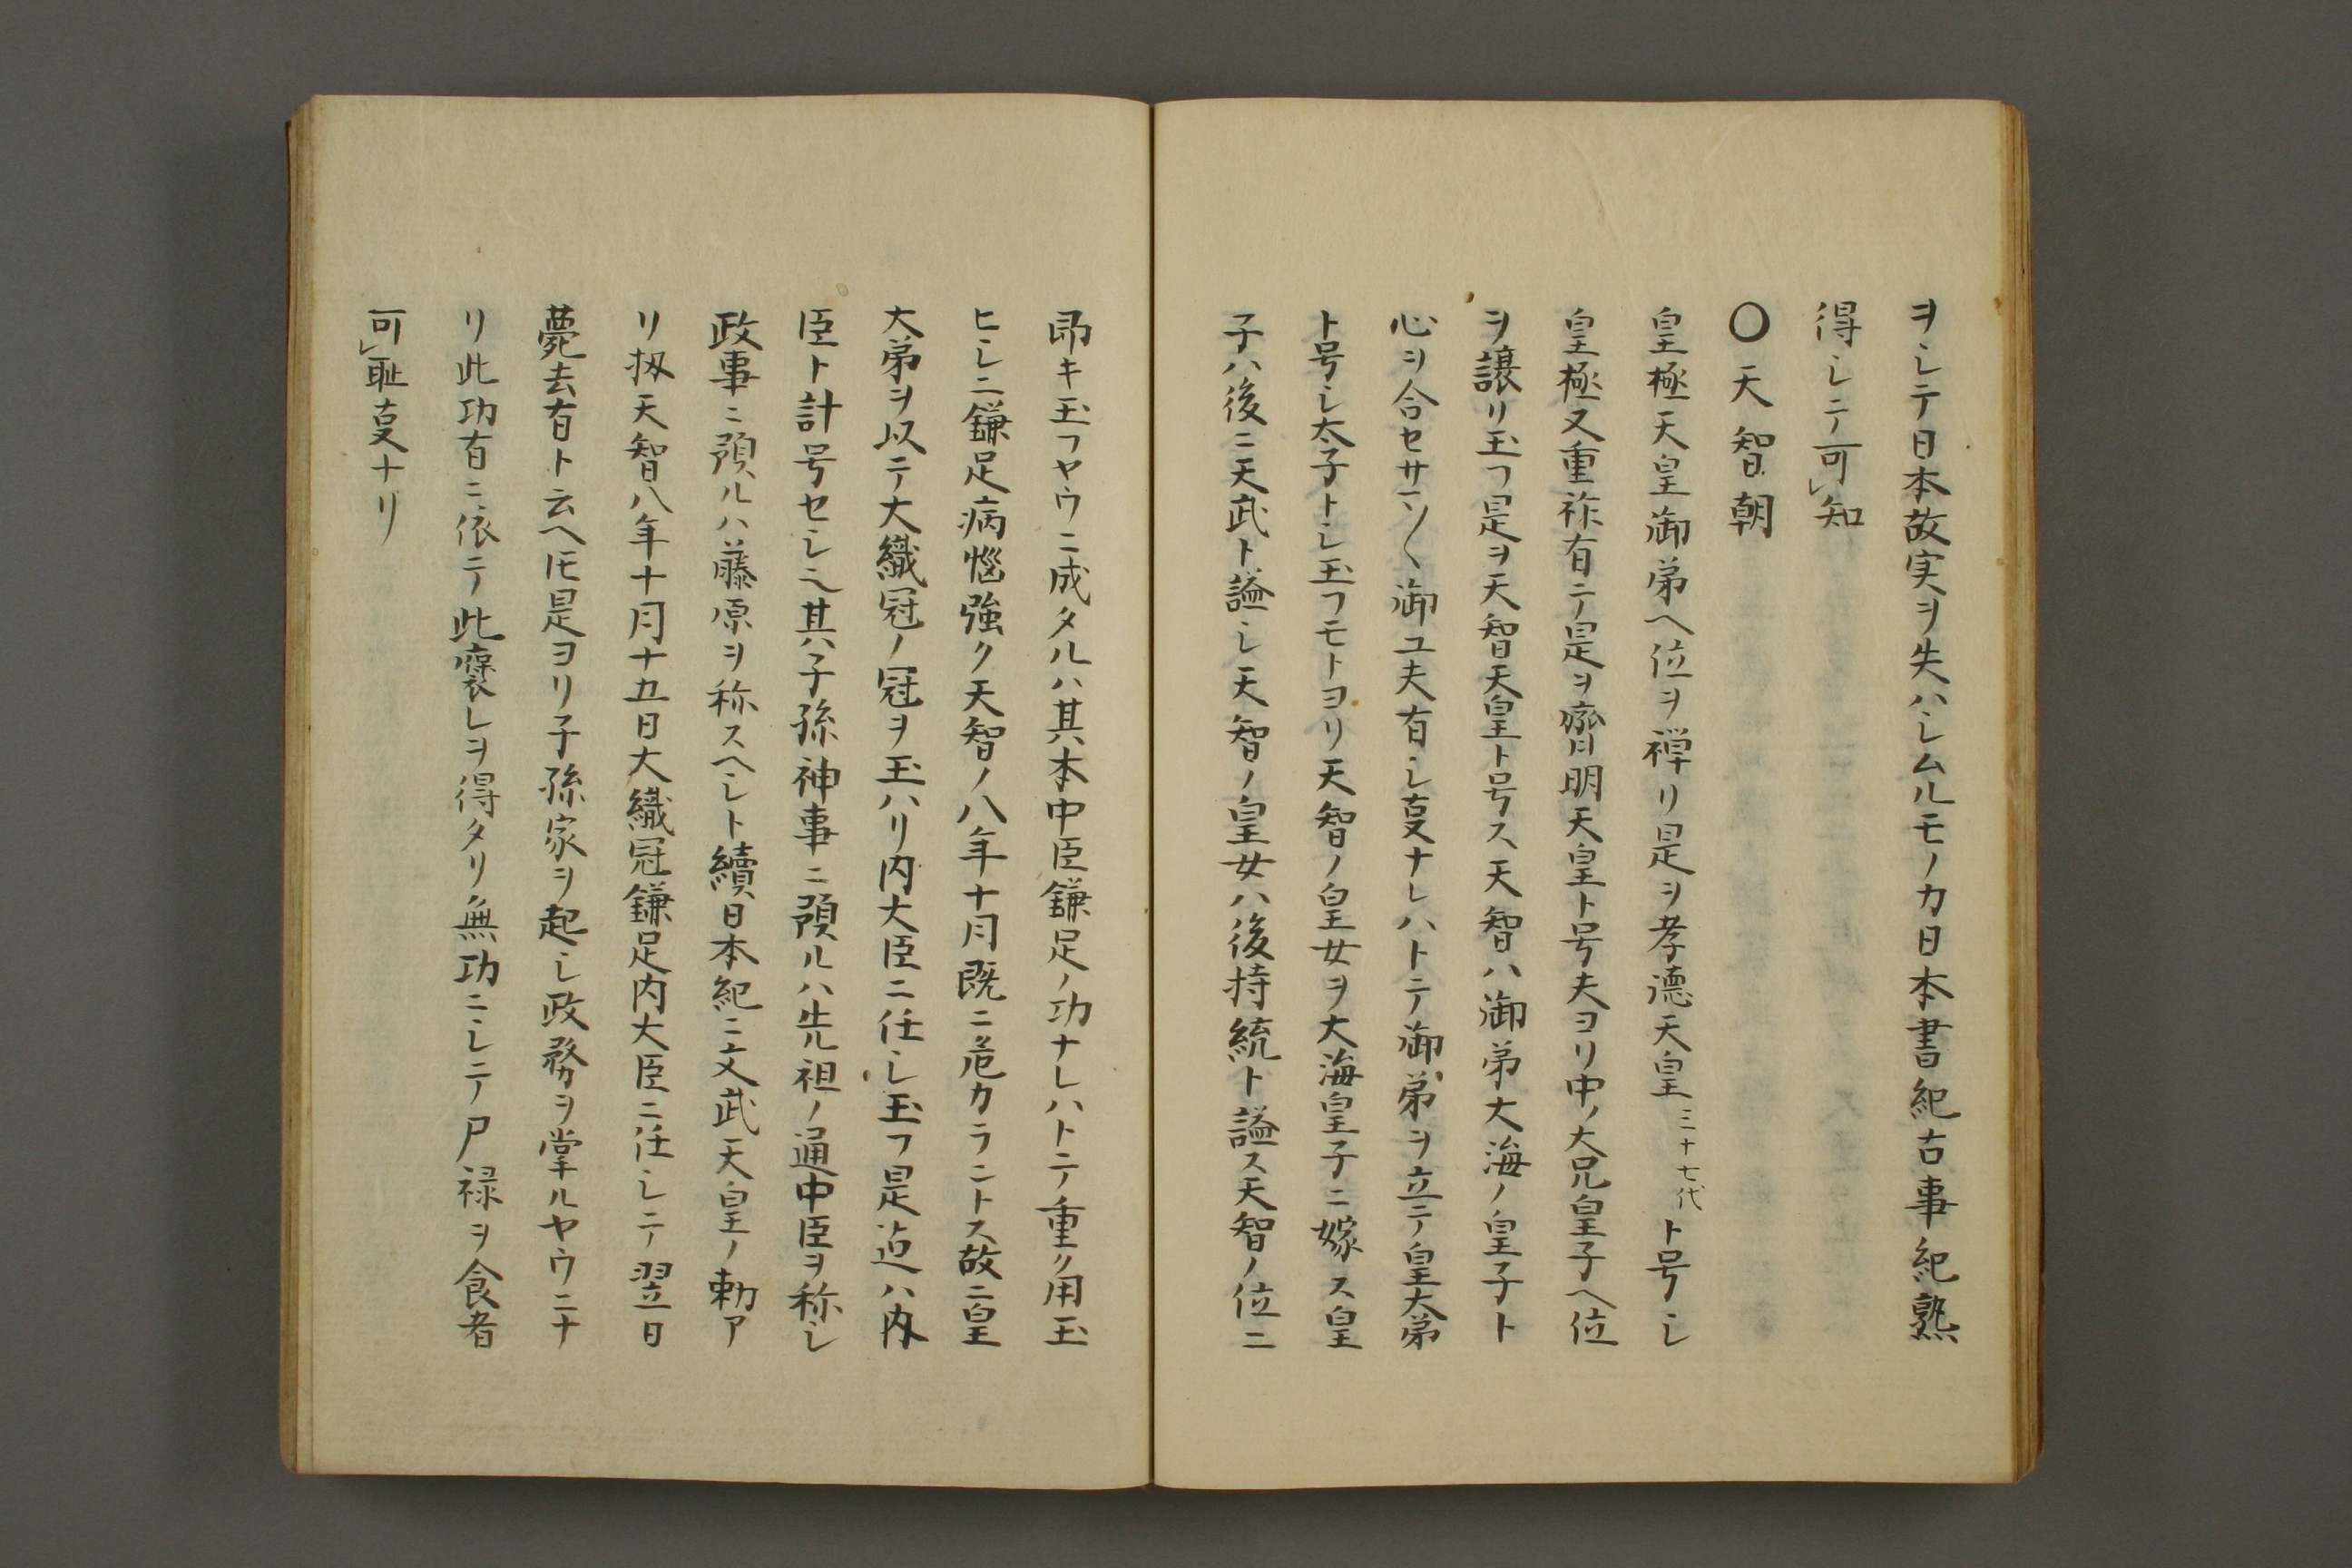 ヲシテ日本故実ヲ失ハシムルモノカ日本書紀古事紀熟
得シテ可レ知
〇天智朝
皇極天皇御弟ヘ位ヲ禅リ是ヲ孝徳天皇三十七代ト号シ
皇極又重祚有テ是ヲ齊明天皇ト号夫ヨリ中ノ大兄皇子ヘ位
ヲ譲リ玉フ是ヲ天智天皇ト号ス天智ハ御弟大海ノ皇子ト
心ヲ合セサマ〱御工夫有シ叓ナレハトテ御弟ヲ立テ皇大弟
ト号シ太子トシ玉フモトヨリ天智ノ皇女ヲ大海皇子ニ嫁ス皇
子ハ後ニ天武ト謚シ天智ノ皇女ハ後持統ト謚ス天智ノ位ニ
即キ玉フヤウニ成タルハ其本中臣鎌足ノ功ナレハトテ重ク用玉
ヒシニ鎌足病悩強ク天智ノ八年十月既ニ危カラントス故ニ皇
大弟ヲ以テ大織冠ノ冠ヲ玉ハリ内大臣ニ任シ玉フ是迠ハ内
臣ト計号セシヘ其ハ子孫神事ニ預ルハ先祖ノ通中臣ヲ称シ
政事ニ預ルハ藤原ヲ称スヘシト續日本紀ニ文武天皇ノ勅ア
リ扨天智八年十月十五日大織冠鎌足内大臣ニ任シテ翌日
薨去有ト云ヘ𪜈是ヨリ子孫家ヲ起シ政務ヲ掌ルヤウニナ
リ此功有ニ依テ此褒シヲ得タリ無功ニシテ尸禄ヲ食者
可レ恥叓ナリ